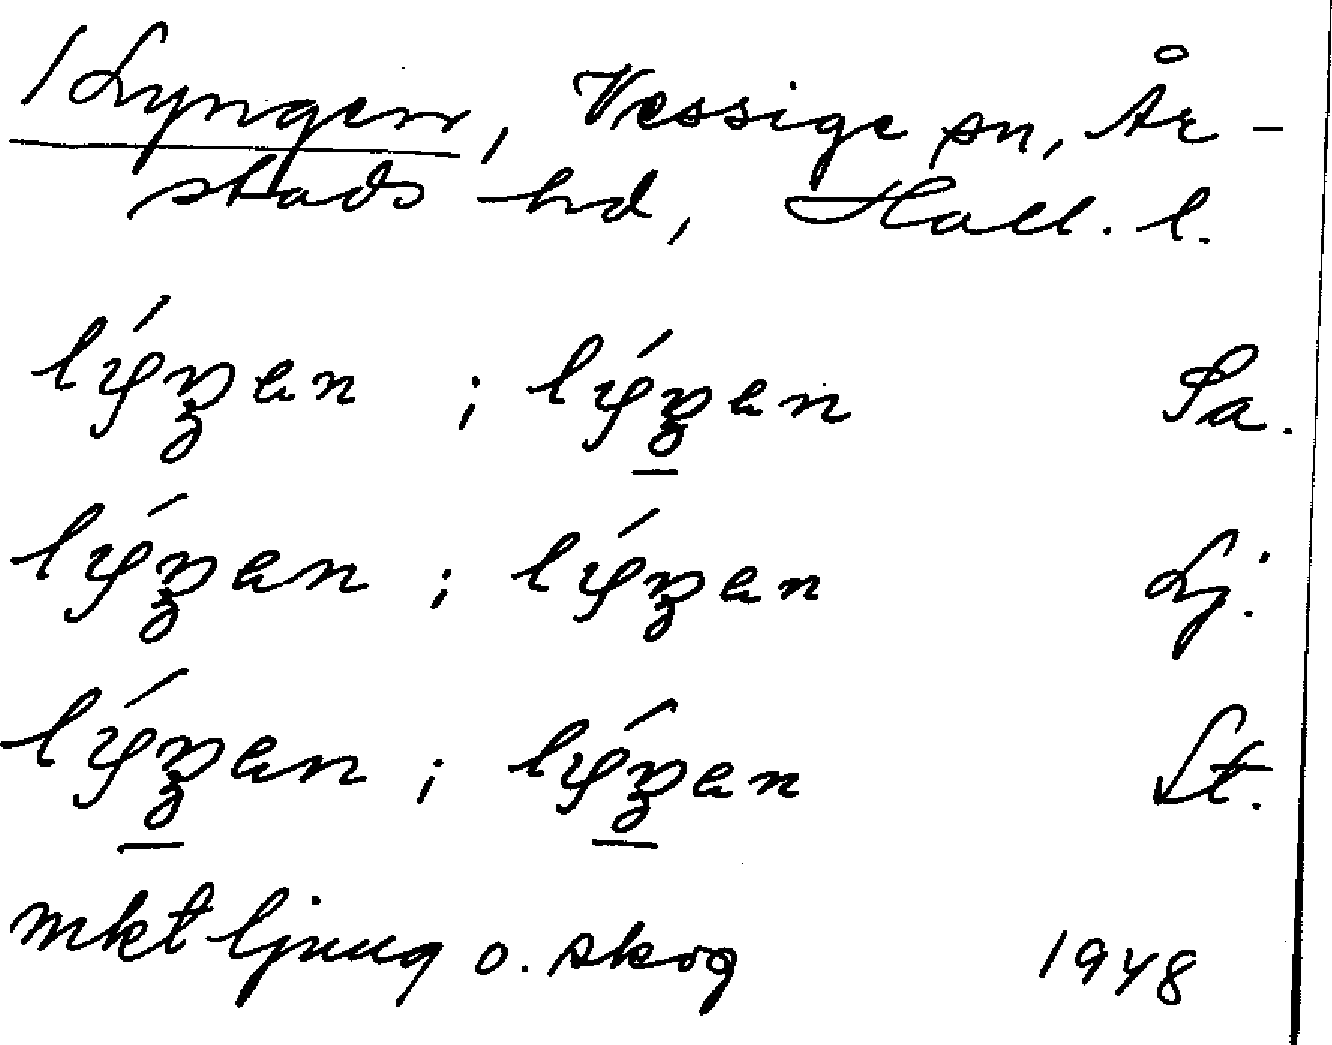 / Lyngen, Vessige sn, År-
stads hd, Hall. l.
lýŋen ; lýŋen Sa.
lýŋen ; lýŋen Lj.
lýŋen ; lýŋen St.
mkt ljung o. skog 1948